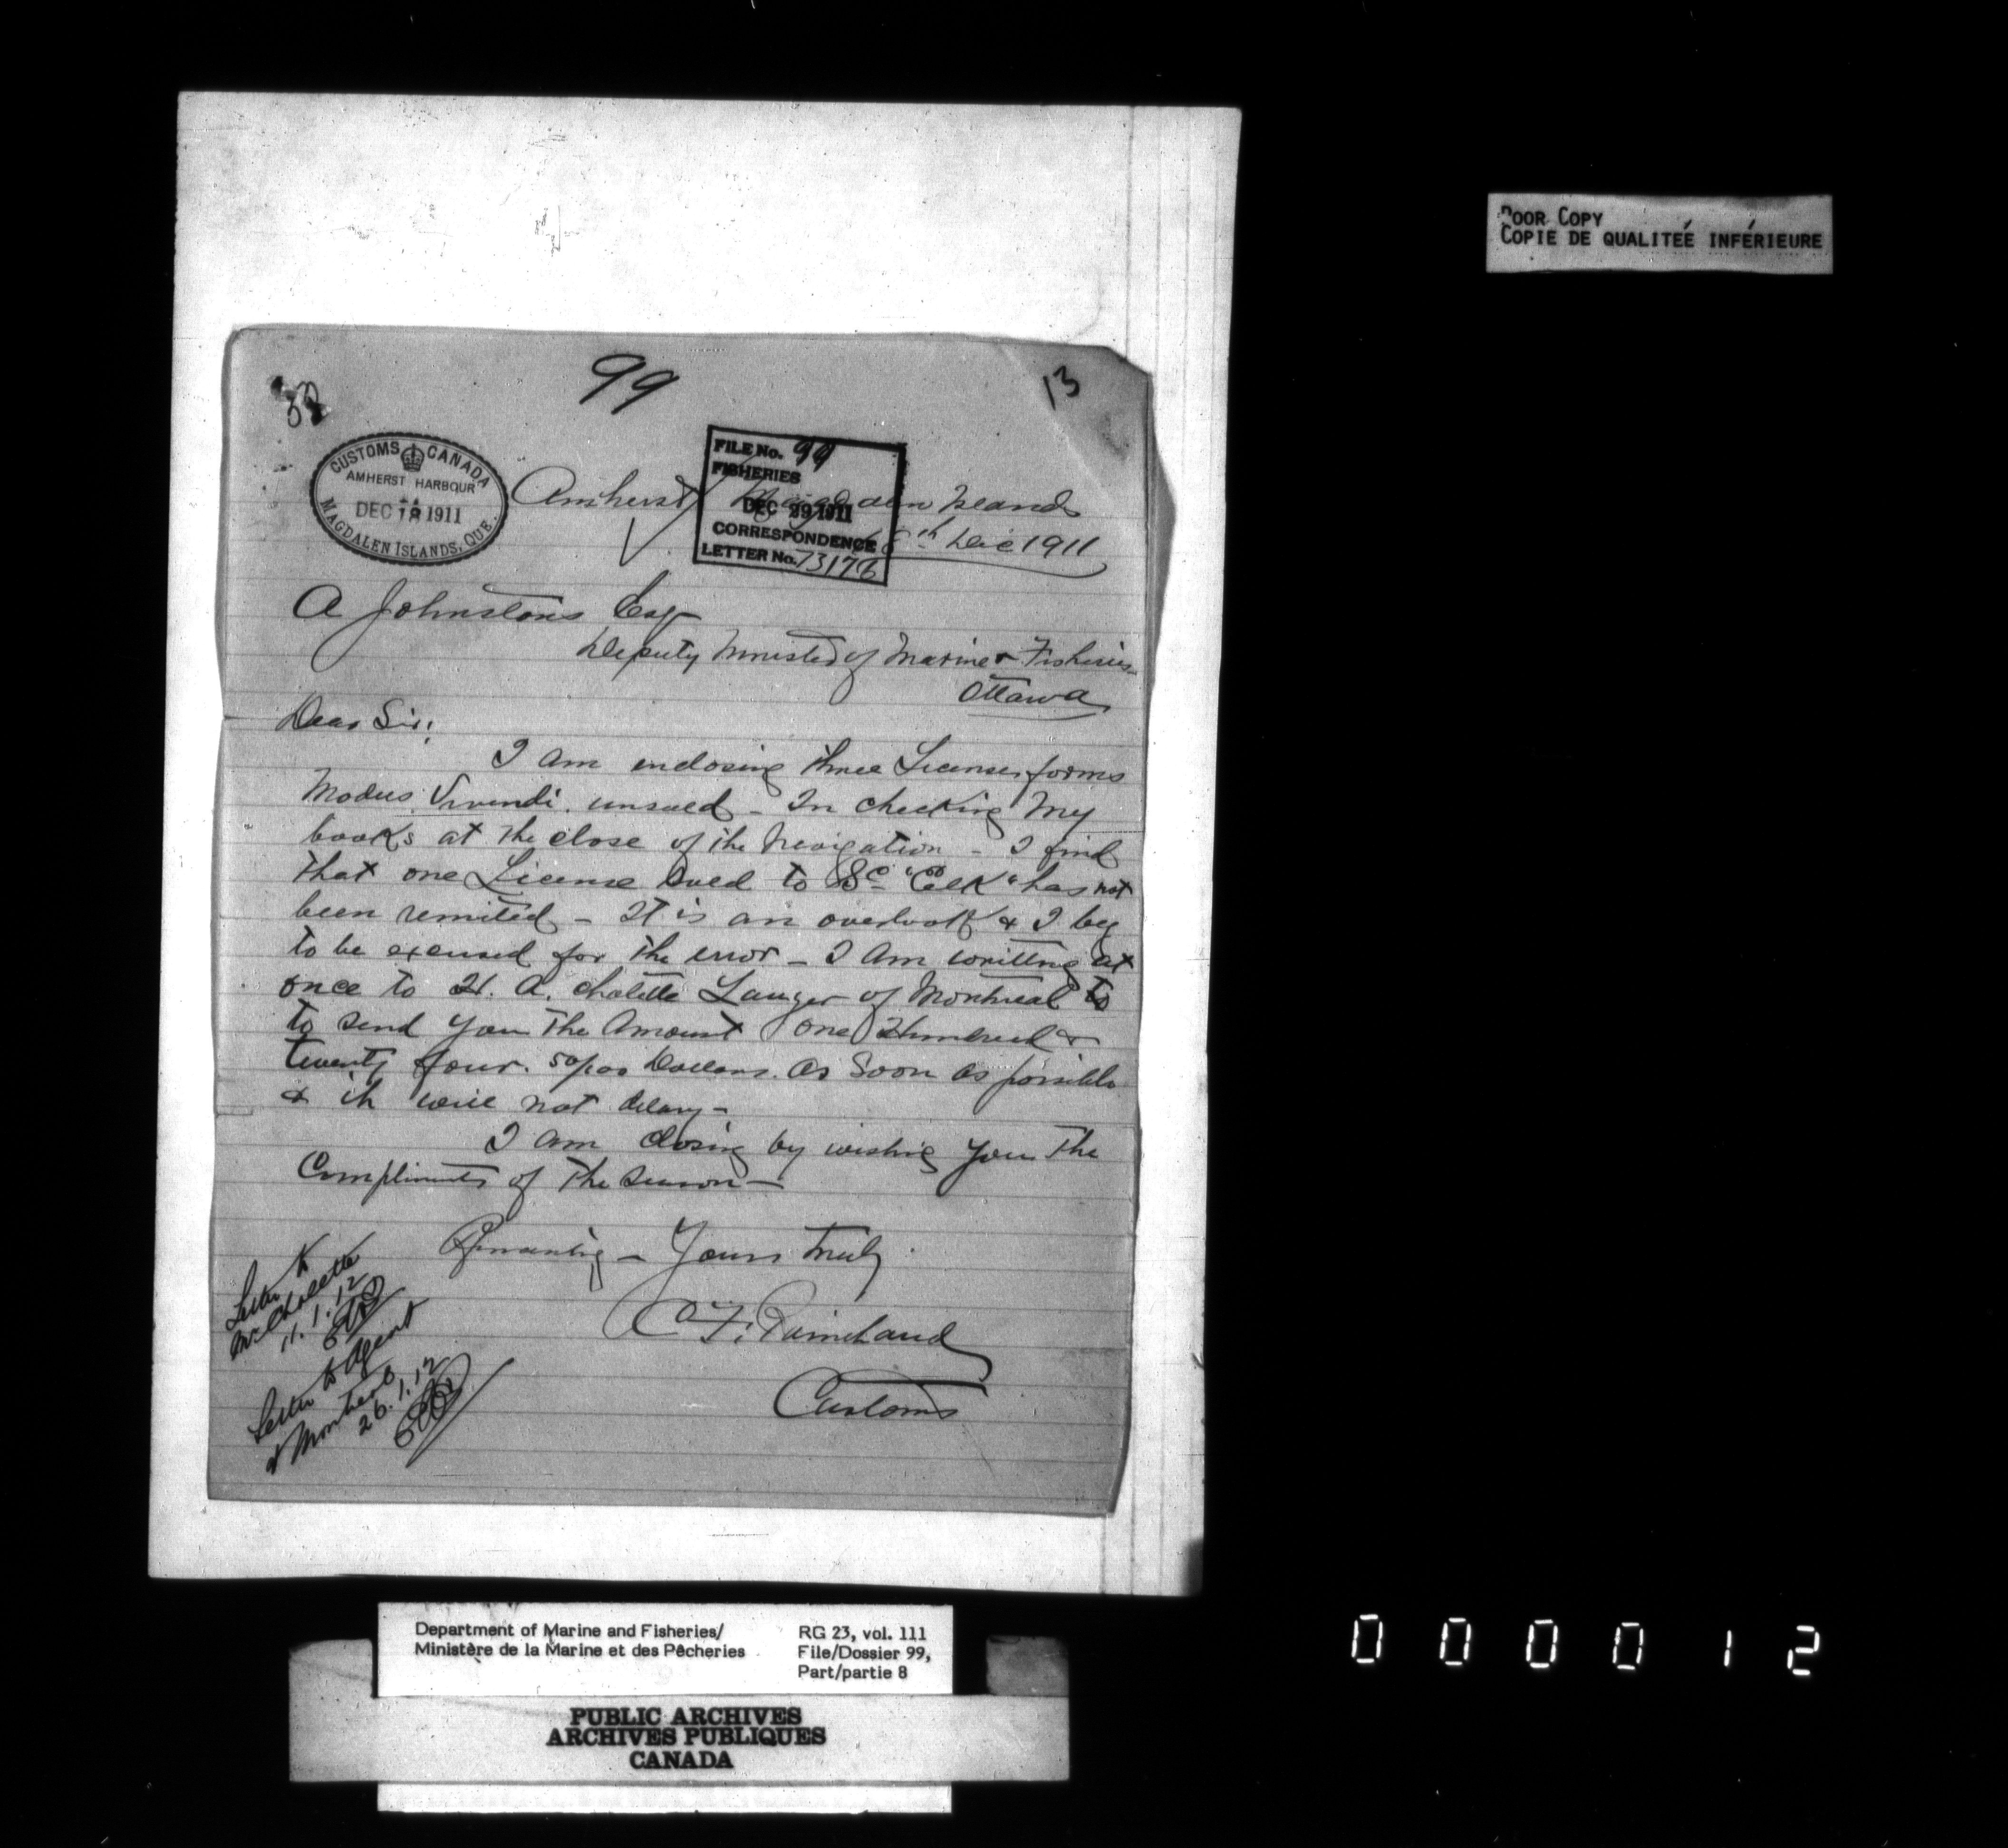 POOR COPY
COPIE DE QUALITEÉ INFÉRIEURE
99
13
CUSTOMS CANADA
AMHERST HARBOUR
DEC 18 1911
MAGDALEN ISLANDS, QUE.
FILE No. 99
FISHERIES
DEC 29 1911
CORRESPONDENCE
LETTER No. 73178
Amherst Magdalen Islands
18th Dec 1911
A Johnstons Esq
Deputy Minister of Marine & Fisheries
Ottawa
Dear Sir:
I am enclosing three Licenses forms
Modus Vivendi. unsued - In checking my
books at the close of the Navigation - I find
that one License sued to Sc "Elk" has not
been remited - It is an overlook & I beg
to be excused for the error - I am writting at
once to H. A. Cholette Lauger of Montreal to
to send you the Amount one Hundred &
twenty four. 50/100 Dollars. as soon as possible
& ih will not delay -
I am closing by wishing you the
Compliments of the Season -
Remaining - Yours truly
F. Painchaud
Customs
Letter to
Mr Cholette
11.1.12
Letter to Agent
at Montreal
26.1.12
Department of Marine and Fisheries/
Ministère de la Marine et des Pêcheries
RG 23, vol. 111
File/Dossier 99,
Part/partie 8
PUBLIC ARCHIVES
ARCHIVES PUBLIQUES
CANADA
000012